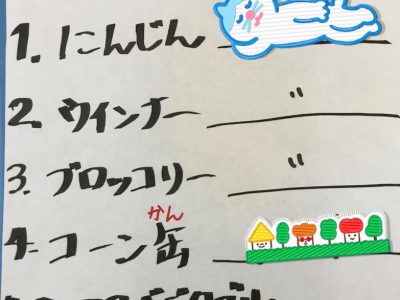 1. にんじん
2. ウインナー 〃
3. ブロッコリー 〃
かん
4. コーン缶